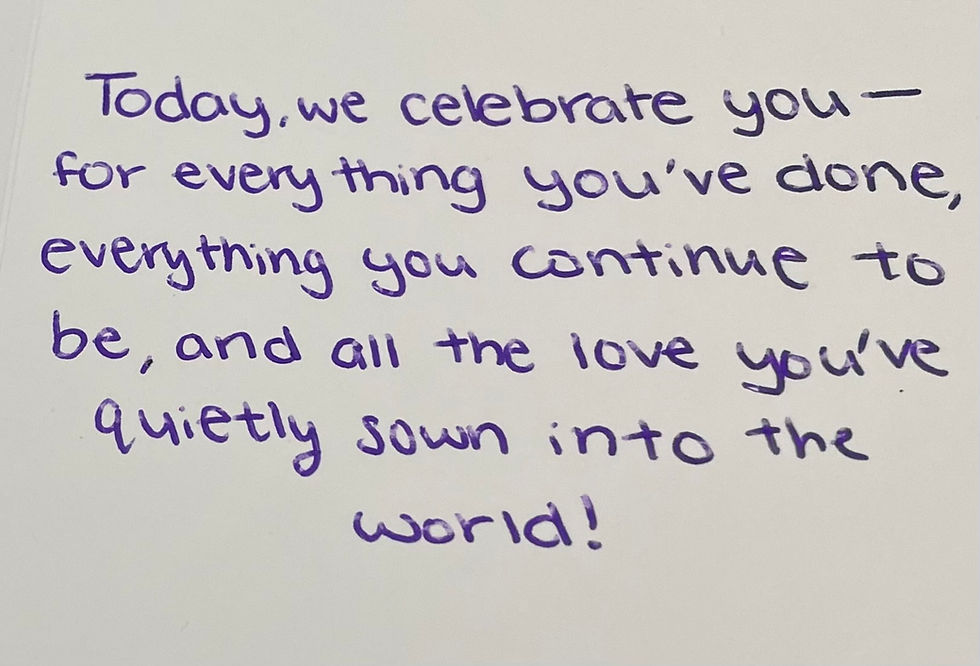 Today, we celebrate you —
for everything you've done,
everything you continue to
be, and all the love you've
quietly sown into the
world!